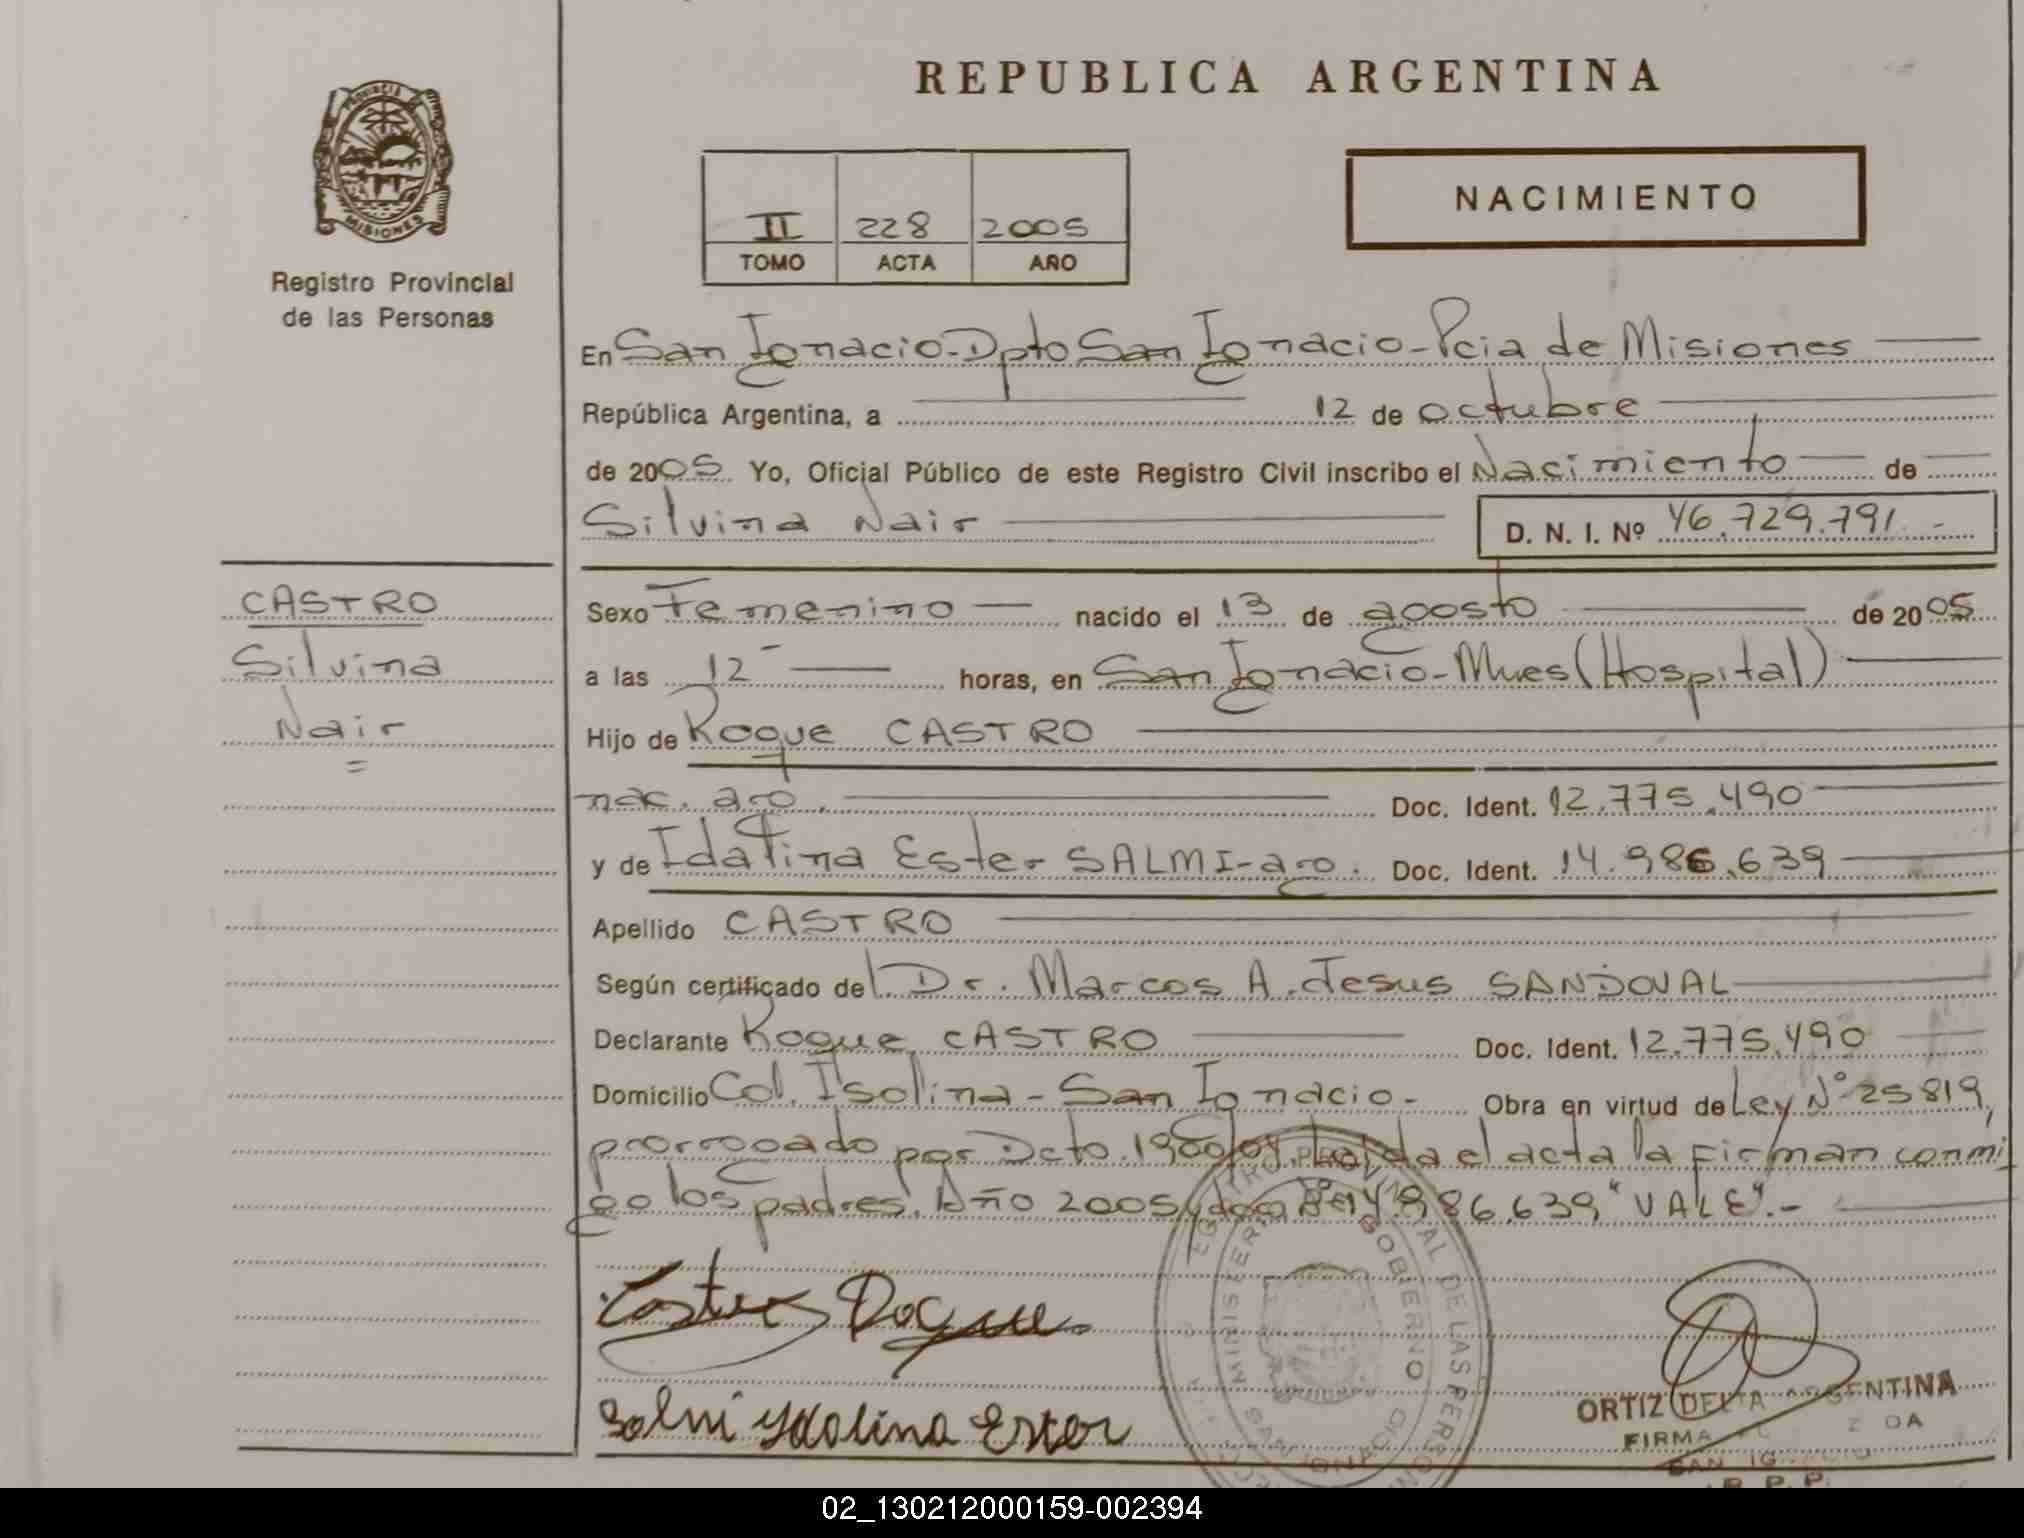 REPUBLICA ARGENTINA
PROVINCIA DE
MISIONES
Registro Provincial
de las Personas
II 228 2005
TOMO ACTA AÑO
NACIMIENTO
En San Ignacio-Dpto San Ignacio-Pcia de Misiones
República Argentina, a 12 de octubre
de 2005. Yo, Oficial Público de este Registro Civil inscribo el Nacimiento de
Silvina Nair D. N. I. Nº 46.729.791.-
CASTRO
Silvina
Nair
Sexo Femenino nacido el 13 de agosto de 2005
a las 12 horas, en San Ignacio-Mnes (Hospital)
Hijo de Roque CASTRO
nac. arg. Doc. Ident. 12.775.490
y de Idalina Ester SALMI-arg. Doc. Ident. 14.986.639
Apellido CASTRO
Según certificado del Dr. Marcos A. Jesus SANDOVAL
Declarante Roque CASTRO Doc. Ident. 12.775.490
Domicilio Col. Isolina - San Ignacio.- Obra en virtud de Ley Nº 25819,
prorrogado por Dcto. Leida el acta la firman conmi
go los padres. Año 2005 14.986.639 "VALE".-
Castro Roque
Salmi Ydalina Ester
REGISTRO PROVINCIAL DE LAS PERSONAS
MINISTERIO GOBIERNO
SAN IGNACIO
ORTIZ DELIA ARGENTINA
FIRMA
SAN IGNACIO
R. P. P.
02_130212000159-002394